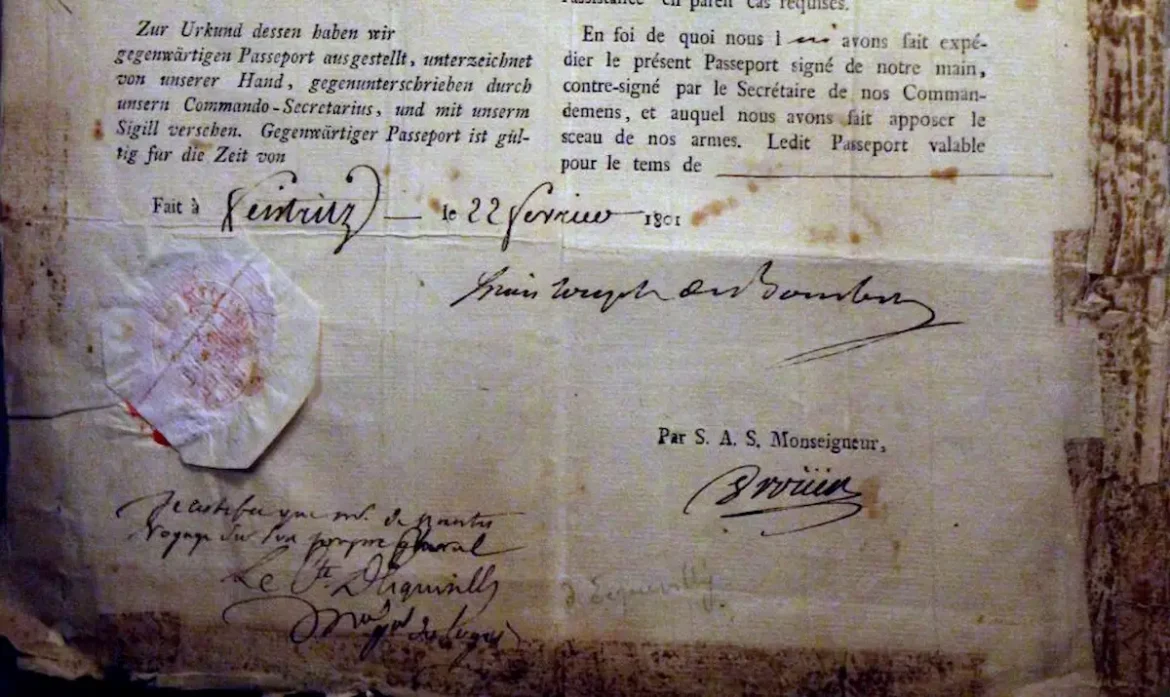 en pareil cas requises.
Zur Urkund dessen haben wir
gegenwärtigen Passeport ausgestellt, unterzeichnet
von unserer Hand, gegenunterschrieben durch
unsern Commando-Secretarius, und mit unserm
Sigill versehen. Gegenwärtiger Passeport ist gül-
tig fur die Zeit von
En foi de quoi nous avons fait expé-
dier le présent Passeport signé de notre main,
contre-signé par le Secrétaire de nos Comman-
demens, et auquel nous avons fait apposer le
sceau de nos armes. Ledit Passeport valable
pour le tems de
Fait à Feistritz le 22 fevrier 1801
Louis Joseph de Bourbon
Par S. A. S. Monseigneur,
Drouin
Je certifie que mr. de
voyage sur son propre cheval
Le Cte D'Ecquevilly
d'Ecquevilly